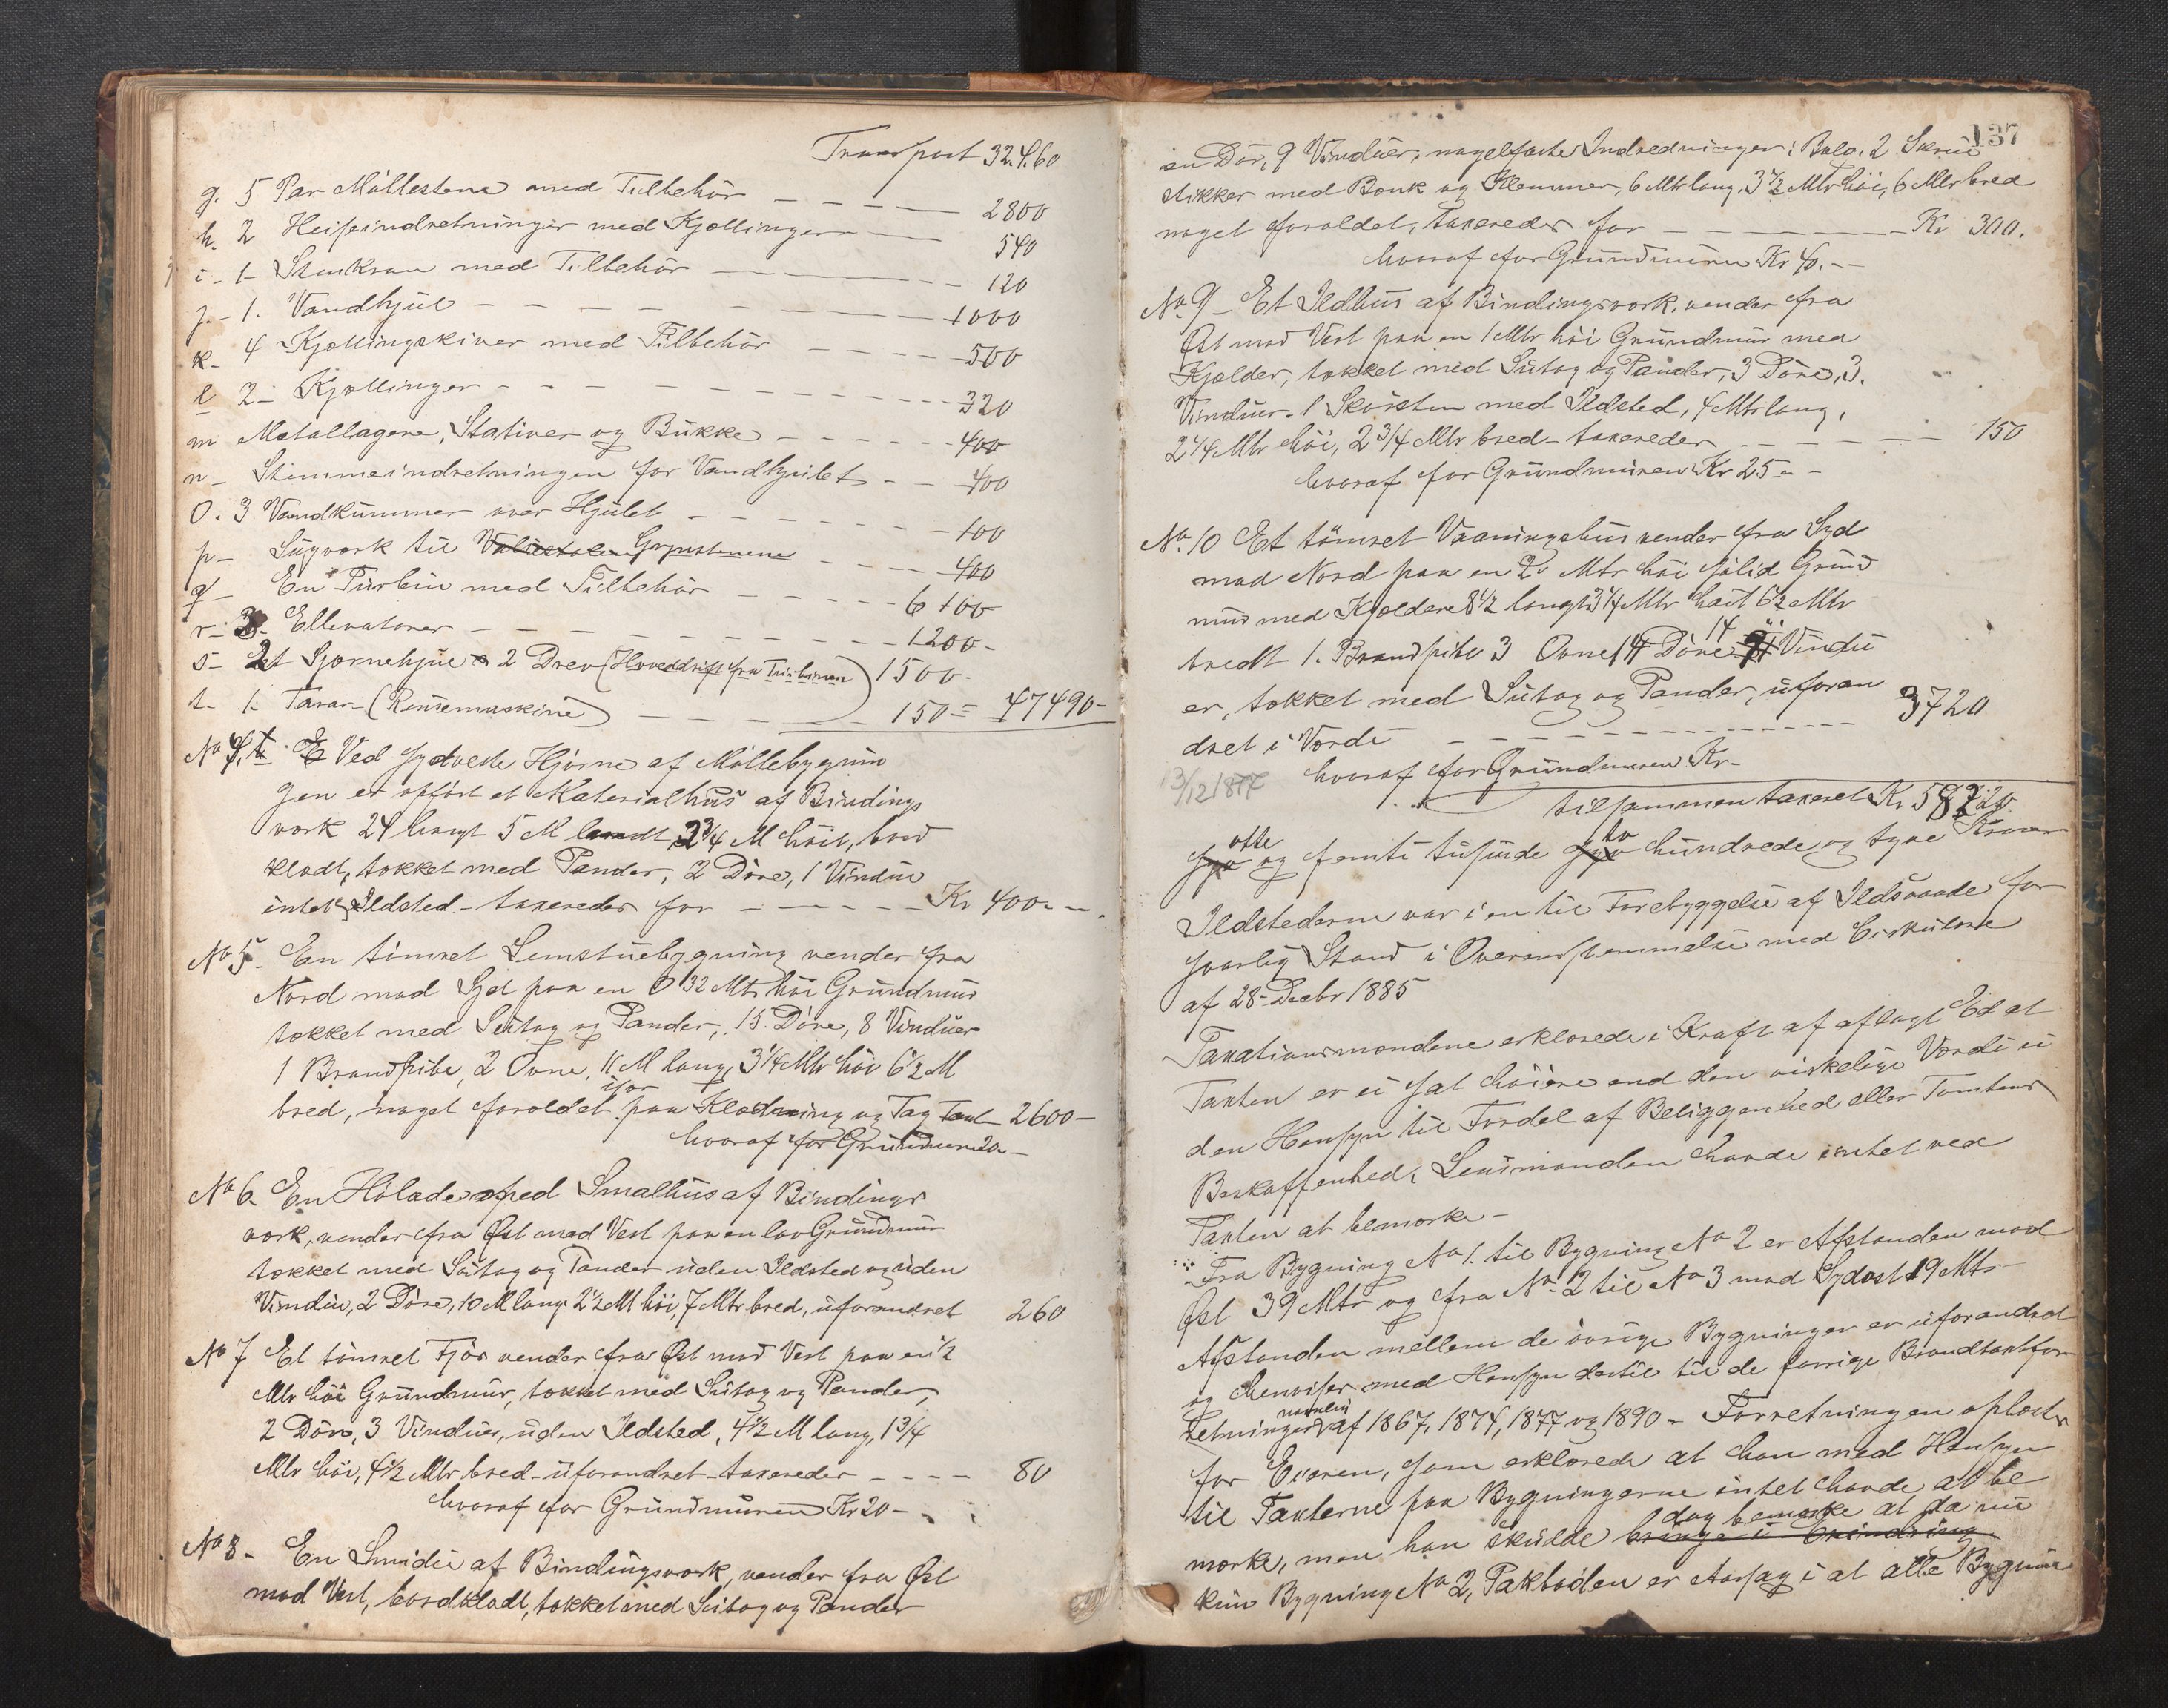 Transport 32.4.60
g. 5 Par Möllestene med Tilbehör 2800
h. 2 Heiseindretninger med Kjættinger 540
i - 1 Stenkran med Tilbehör 120
j - 1. Vandhjul 1000
k - 4 Kjættingskiver med Tilbehör 500
l 2 - Kjættinger 320
m Metallagere, Stativer og Bukke 400
n - Stemmeindretningen for Vandhjulet 400
o. 3 Vandkummer over Hjulet 100
p - Sugværk til Valsestolen Grynstenene 400
q - En Turbin med Tilbehör 6100
r - 3. Ellevatorer 1200 -
s - Et Stjernehjul 2 Drev (Hoveddrift fra Turbinen) 1500 -
t - 1. Tarar (Rensemaskine) 150 = 47490 -
No 4, t. Ved sydvestre Hjörne af Möllebygnin
gen er opfört et Materialhus af Bindings
værk 24 langt 5 M bredt, 2 3/4 M höit, bord
klædt, tækket med Pander, 2 Döre, 1 Vindue
intet Ildsted - taxeredes for Kr 400 - -
No 5 - En tömret Svenstuebygning vender fra
Nord mod Syd paa en 0,32 Mtr höi Grundmur
tækket med Sutag og Pander, 15 Döre, 8 Vinduer
1 Brandpibe, 2 Ovne, 11 M lang, 3 1/4 Mtr höi 6 1/2 M
bred, noget foroldet især paa Klædning og Tag Taxt 2600 -
hvoraf for Grundmuren 20 -
No 6. En Hölade med Smalhus af Bindings
værk, vender fra Öst mod Vest paa en lav Grundmur
tækket med Sutag og Pander uden Ildsted og uden
Vindue, 2 Döre, 10 M lang 2 1/2 M höi, 7 Mtr bred, uforandret 260
No 7 Et tömret Fjös vender fra Öst mod Vest paa en 1/2
Mtr höi Grundmur, tækket med Sutag og Pander,
2 Döre, 3 Vinduer, uden Ildsted, 4 1/2 M lang, 1 3/4
Mtr höi, 4 1/2 Mtr bred - uforandret - taxeredes 80
hvoraf for Grundmuren Kr 20 -
No 8 - En Smidie af Bindingsværk, vender fra Öst
mod Vest, bordklædt, tækket med Sutag og Pander
137
en Dör, 9 Vinduer, nagelfaste Indredninger: Bælg, 2 Skrue
stikker med Bænk og Klemmer, 6 Mtr lang, 3 1/2 Mtr höi, 6 Mtr bred
noget foroldet, taxeredes for Kr 300.
hvoraf for Grundmuren Kr 40. - -
No 9 - Et Ildhus af Bindingsværk, vender fra
Öst mod Vest paa en 1 Mtr höi Grundmur med
Kjælder, tækket med Sutag og Pander, 3 Döre, 3.
Vinduer - 1 Skorsten med Ildsted, 4 Mtr lang,
2 1/4 Mtr höi, 2 3/4 Mtr bred - taxeredes 150
hvoraf for Grundmuren Kr 25 - -
No 10 Et tömret Vaaningshus vender fra Syd
mod Nord paa en 2 Mtr höi solid Grund
mur med Kjældere 8 1/2 langt 3 1/4 Mtr höit 6 1/2 Mtr
bredt 1. Brandpibe 3 Ovne 14 Döre 14 Vindu
er, tækket med Sutag og Pander, uforan
dret i Værdi 3720
hvoraf for Grundmuren Kr -
13/12 1877
tilsammen taxeret Kr 58220
syv otte og femti tusinde syv to hundrede og tyve Kroner
Ildstederne var i en til Forebyggelse af Ildsvaade for
svarlig Stand i Overensstemmelse med Cirkulære
af 28 - Decbr 1885
Taxationsmændene erklærede i Kraft af aflagt Ed at
Taxten er ei sat höiere end den virkelige Værdi u
den Hensyn til Fordel af Beliggenhed eller Tomtens
Beskaffenhed, Lensmanden havde intet ved
Taxten at bemærke -
Fra Bygning No 1. til Bygning No 2 er Afstanden mod
Öst 39 Mtr og fra No. 2 til No 3 mod Sydost 19 Mtr
Afstanden mellem de övrige Bygninger er uforandret
og henviser med Hensyn dertil til de forrige Brandtaxtfor
retninger navnlig af 1867, 1874, 1877 og 1890 - Forretningen oplæstes
for Eieren, som erklærede at han med Hensyn
til Taxterne paa Bygningerne intet havde at be
mærke, men han skulde bringe i Erindring dog bemærke at da nu
kun Bygning No 2, Pakboden er Aarsag i at alle Bygnin